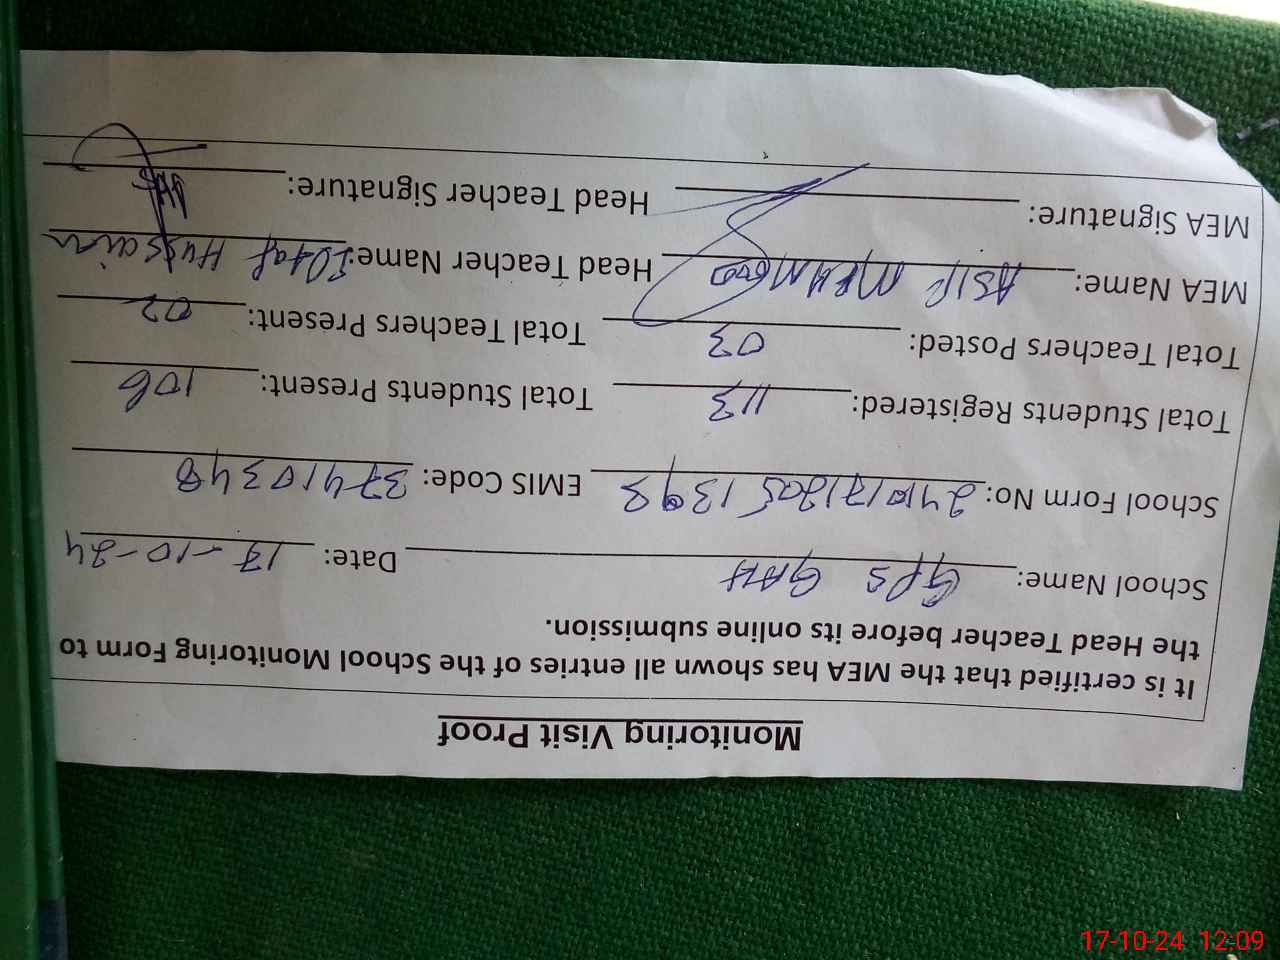 Monitoring Visit Proof
It is certified that the MEA has shown all entries of the School Monitoring Form to
the Head Teacher before its online submission.
School Name: GPS GAH Date: 17-10-24
School Form No: EMIS Code: 37410348
Total Students Registered: 113 Total Students Present: 106
Total Teachers Posted: 03 Total Teachers Present: 02
MEA Name: ASIF MEHMOOD Head Teacher Name: Hussain
MEA Signature: Head Teacher Signature:
17-10-24 12:09